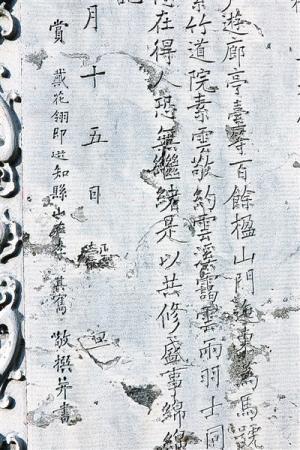 遊廊亭臺等百餘楹山門迤東為馬號
紫竹道院素雲敬約雲溪靄雲兩羽士同
在得人恐無繼緒是以共修盛事綿綿
月十五日
賞戴花翎即選知縣山
敬撰并書